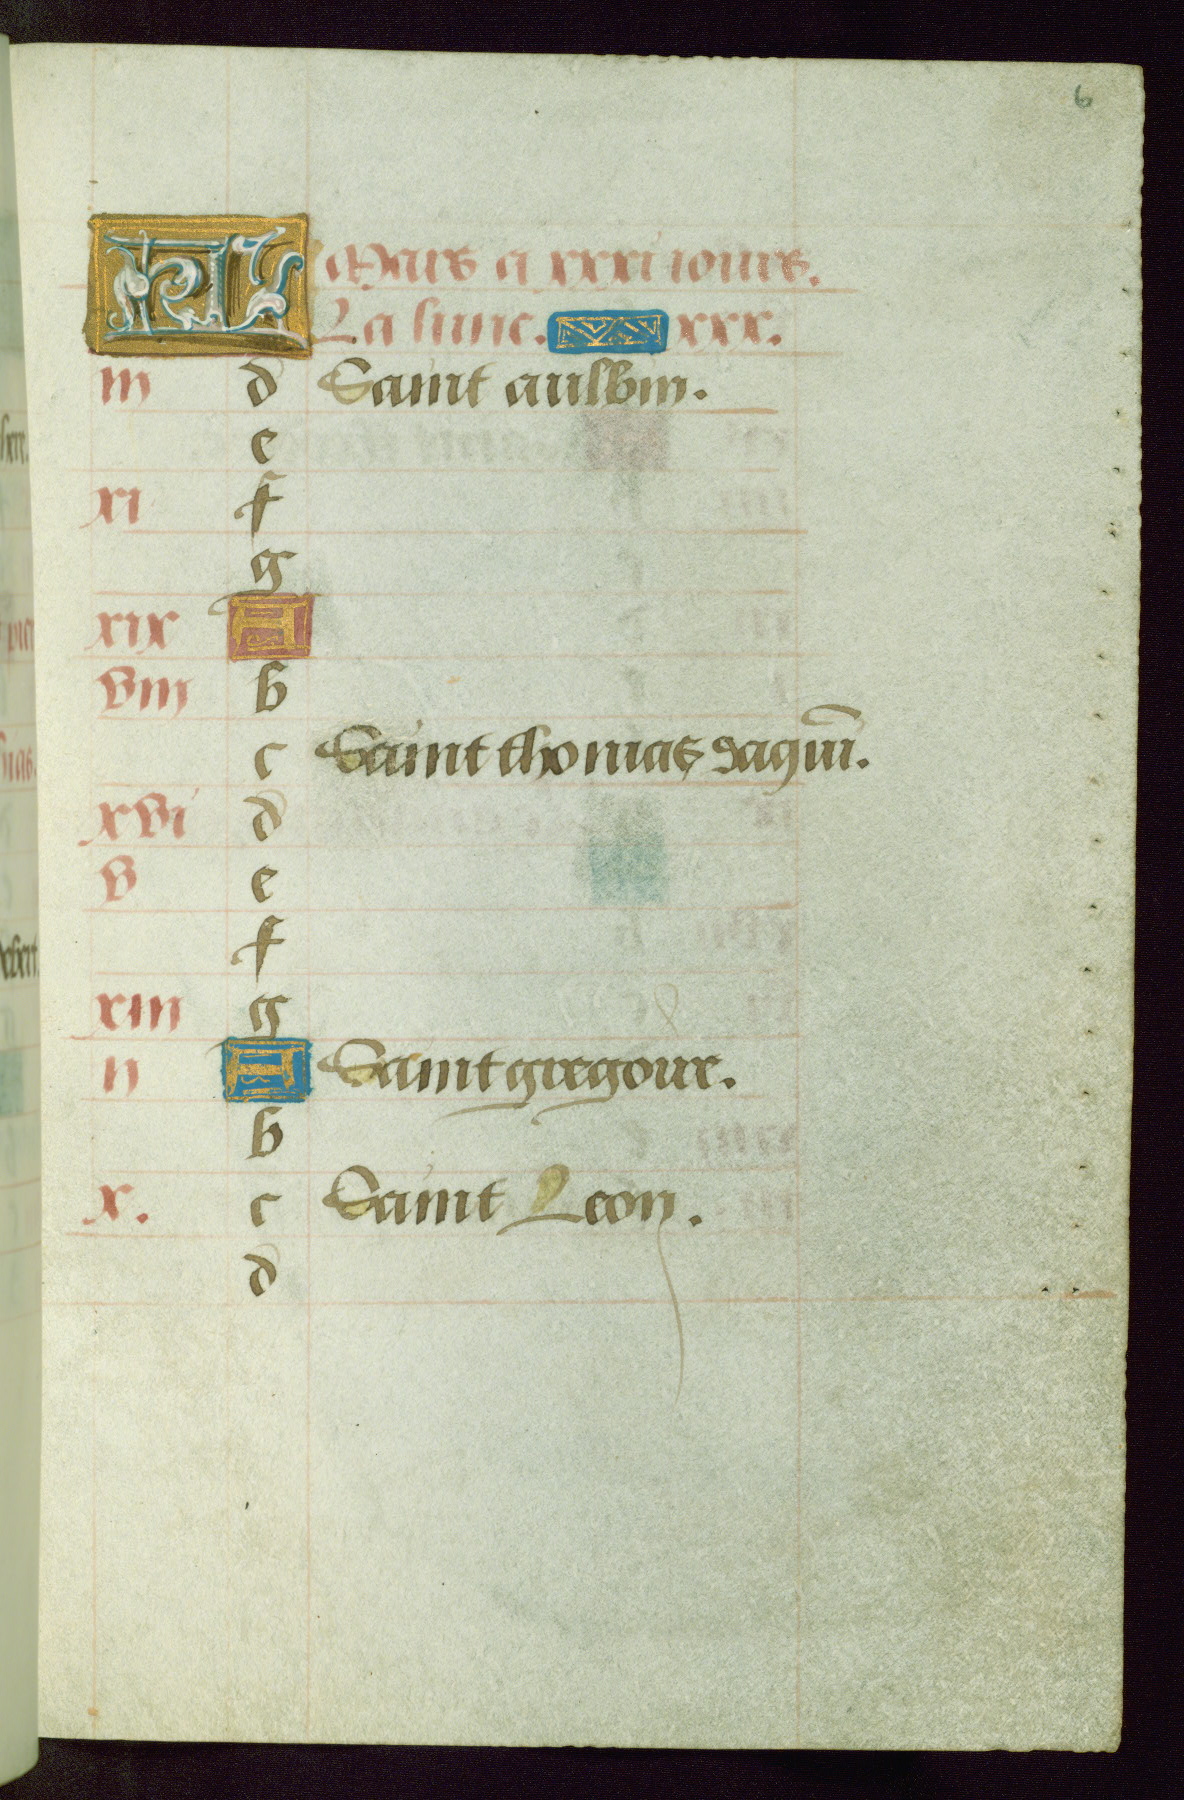 6
KL Mars a xxxi iours.
La lune. xxx.
iii d Saint aulbin.
e
xi f
g
xix A
viii b
c Saint thomas daquī.
xvi d
v e
f
xiii g
ii A Saint gregoire.
b
x. c Saint Leon.
d